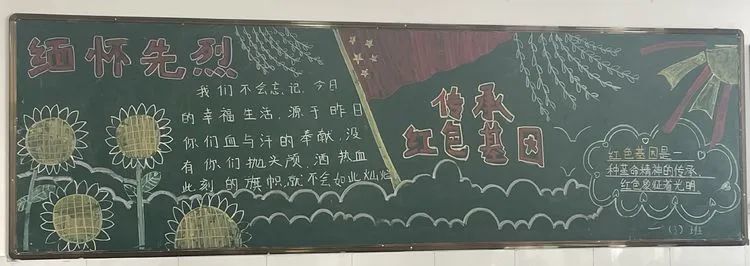 缅怀先烈
我们不会忘记,今日
的幸福生活,源于昨日
你们血与汗的奉献,没
有你们抛头颅,洒热血
此刻的旗帜就不会如此灿烂
传承
红色基因
红色基因是一
种革命精神的传承
红色象征着光明
一(3)班